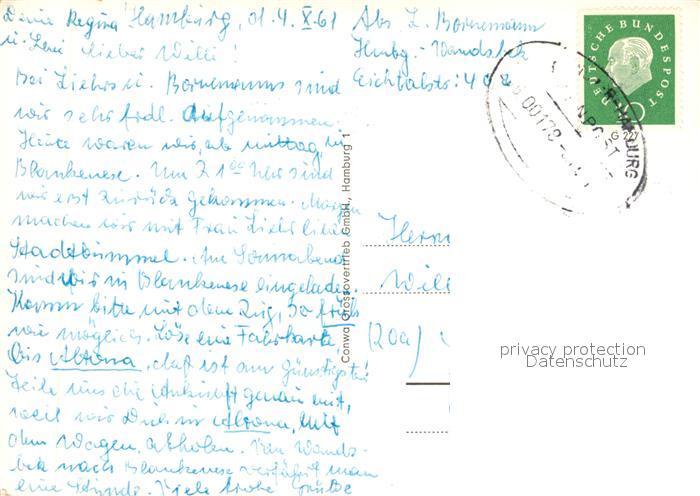 Liebe Regina Hamburg, d. 4. X. 61
u. lieber Willi!
Bei Liebers u. Bornemanns sind
wir sehr frdl. aufgenommen.
Heute waren wir ab mittag in
Blankenese. Um 21 Uhr sind
wir erst zurück gekommen. Morgen
machen wir mit Frau Liebers
Stadtbummel. Am Sonnabend
sind wir in Blankenese eingeladen.
Komm bitte mit dem Zug, so früh
wie möglich. Löse eine Fahrkarte
bis Altona, das ist am günstigsten
Teile uns die Ankunft genau mit,
weil wir Dich in Altona, mit
dem Wagen, abholen. Von Wands-
bek nach Blankenese verfährt man
eine Stunde. Viele frohe Grüße
Abs. L. Bornemann
Hmbg.-Wandsbek
Eichtalstr. 40
DEUTSCHE BUNDESPOST
Conwa Grossovertrieb GmbH., Hamburg 1
Herrn
(20a)
privacy protection
Datenschutz